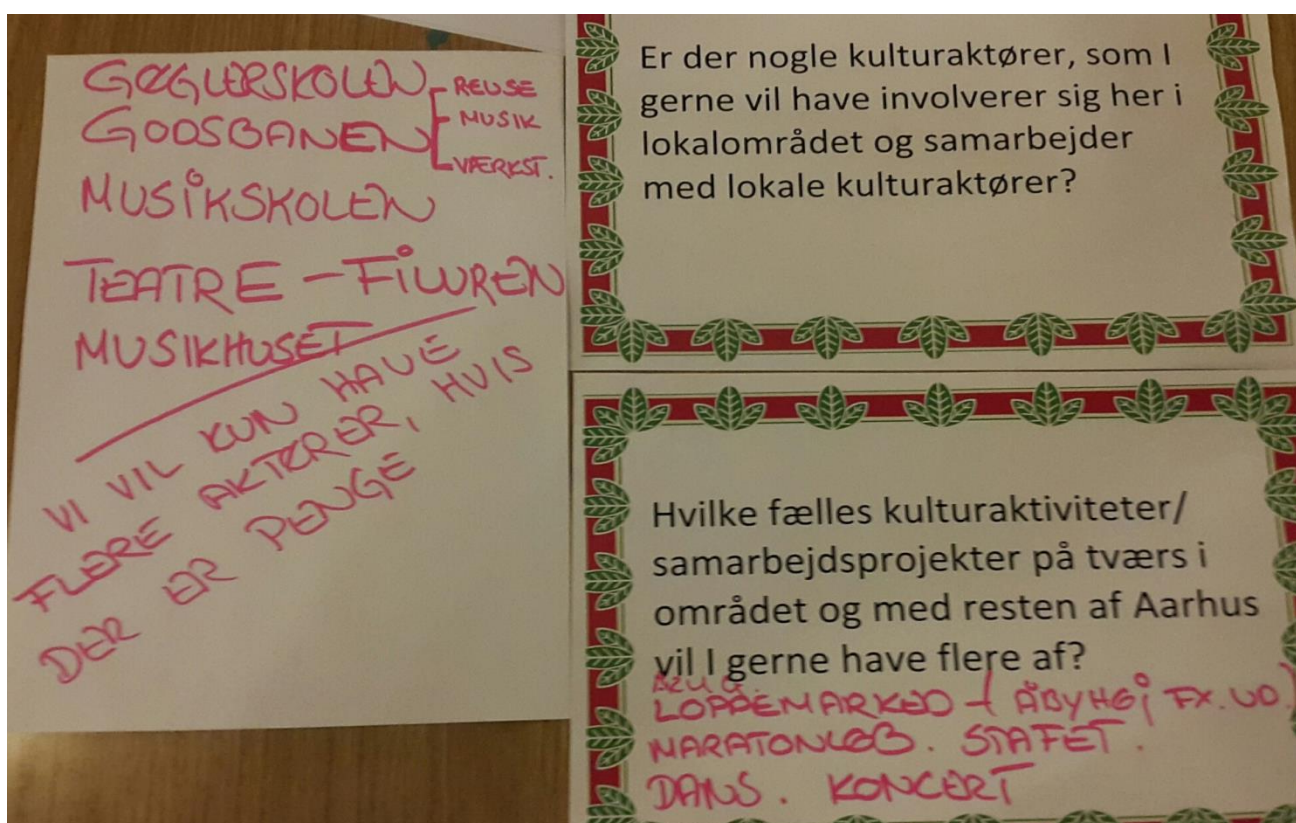 GØGLERSKOLEN
GODSBANEN
REUSE
MUSIK
VÆRKST.
MUSIKSKOLEN
TEATRE - FILUREN
MUSIKHUSET
VI VIL KUN HAVE
FLERE AKTØRER, HVIS
DER ER PENGE
Er der nogle kulturaktører, som I
gerne vil have involverer sig her i
lokalområdet og samarbejder
med lokale kulturaktører?
Hvilke fælles kulturaktiviteter/
samarbejdsprojekter på tværs i
området og med resten af Aarhus
vil I gerne have flere af?
LOPPEMARKED - ( ÅBYHØJ FX.
MARATONLØB. STAFET.
DANS. KONCERT